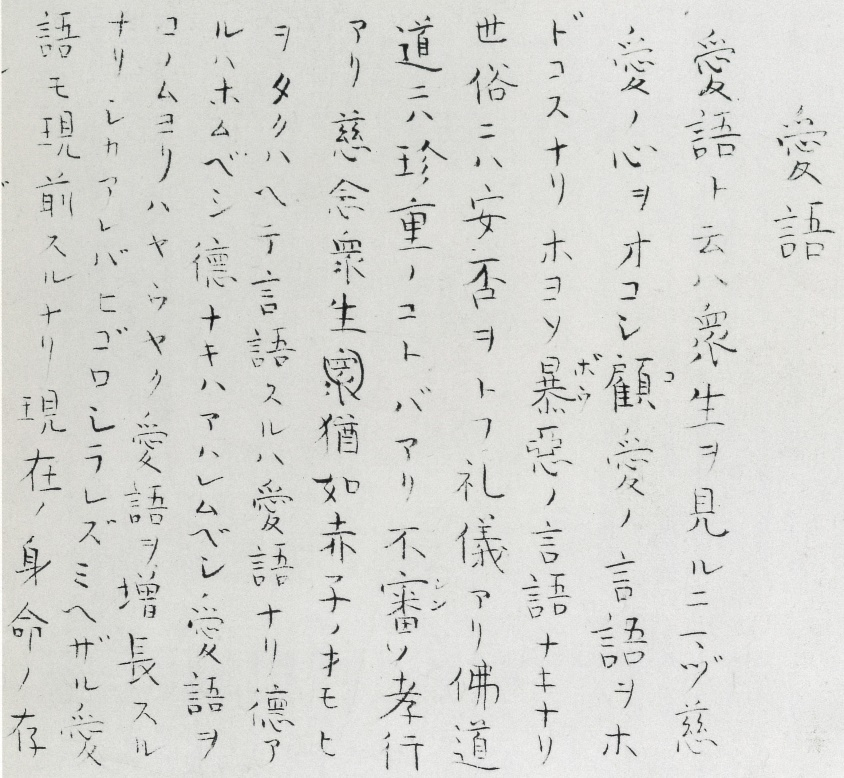 愛語
愛語ト云ハ衆生ヲ見ルニマヅ慈
愛ノ心ヲオコシ顧愛ノ言語ヲホ
ドコスナリホヨソ暴惡ノ言語ナキナリ
世俗ニハ安否ヲトフ礼儀アリ佛道
道ニハ珍重ノコトバアリ不審ノ孝行
アリ慈念衆生衆猶如赤子ノオモヒ
ヲタクハヘテ言語スルハ愛語ナリ德ア
ルハホムベシ德ナキハアハレムベシ愛語ヲ
コノムヨリハヤウヤク愛語ヲ增長スル
ナリシカアレバヒゴロシラレズミヘザル愛
語モ現前スルナリ現在ノ身命ノ存